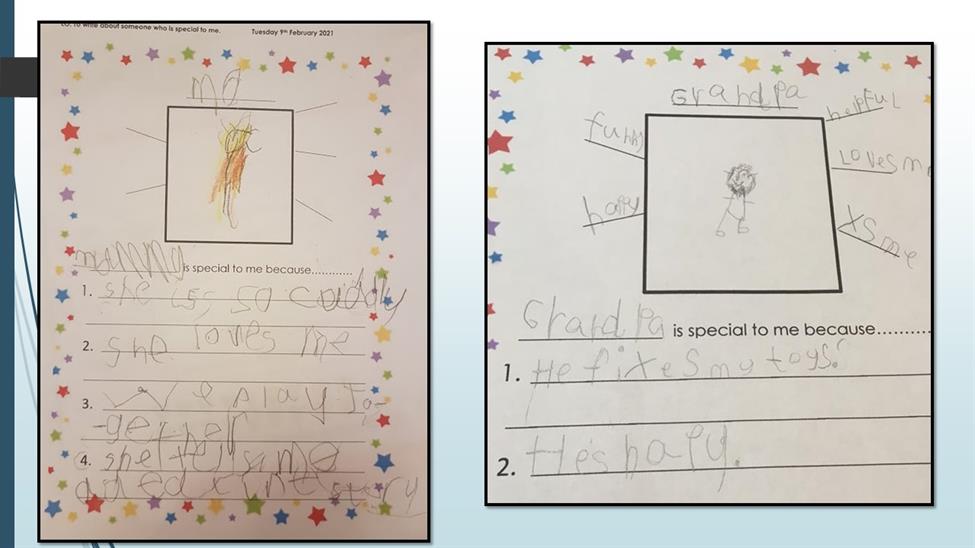 LO: To write about someone who is special to me.
Tuesday 9th February 2021
is special to me because............
1. she so cuddly
2. she loves me
3. We play to-
-gether
4. she me
story
Grandpa
helpful
funny
Loves m
happy
me
Grandpa is special to me because..........
1. He fixes my toys.
2. He's hapy.